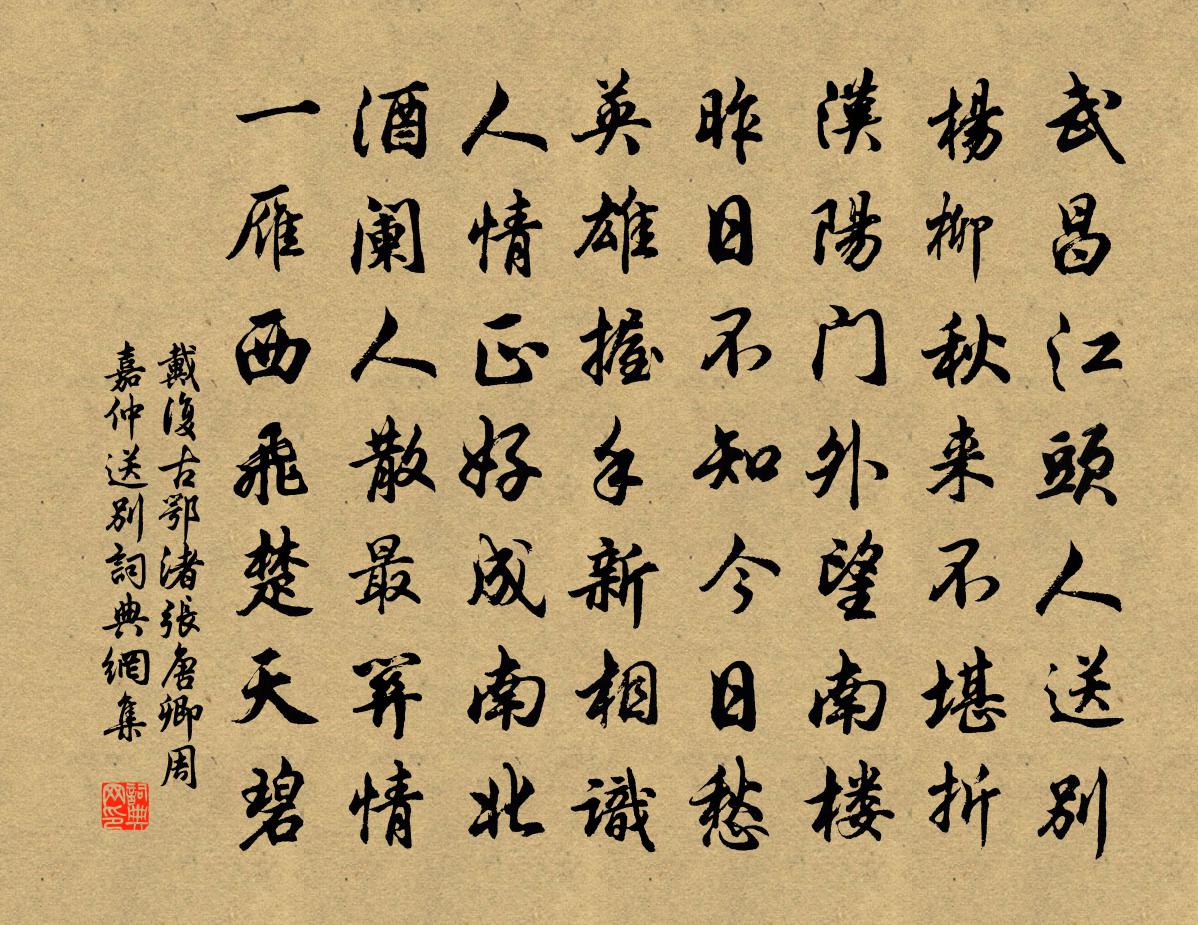 武昌江頭人送別
楊柳秋来不堪折
漢陽门外望南楼
昨日不知今日愁
英雄握手新相識
人情正好成南北
酒阑人散最関情
一雁西飛楚天碧
戴復古鄂渚張唐卿周
嘉仲送別詞典網集
詞典
网印